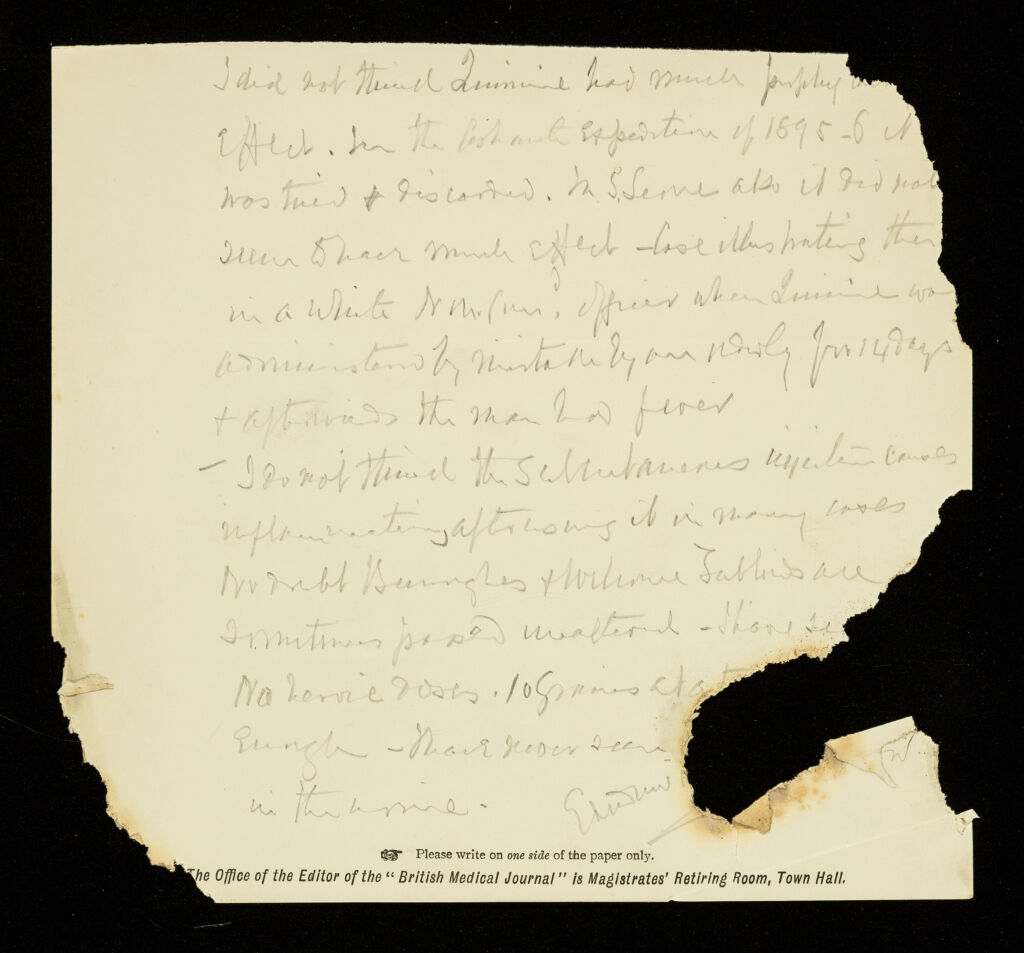 I did not think Quinine had much
effect. In the Ashanti Expedition of 1895-6 it
was tried & discarded. In S. Leone also it did not
seem to have much effect - Case illustrating this
in a White officer when Quinine was
administered by mistake daily for 14 days
& afterwards the man had fever
- I do not think the Subcutaneous injection causes
inflammation after using it in many cases
No doubt Burroughs & Wellcome Tabloids are
Sometimes passed unaltered - I have
No heroic doses. 10 Grains at a
Enough - I have never seen
in the urine -
☞ Please write on one side of the paper only.
The Office of the Editor of the "British Medical Journal" is Magistrates' Retiring Room, Town Hall.